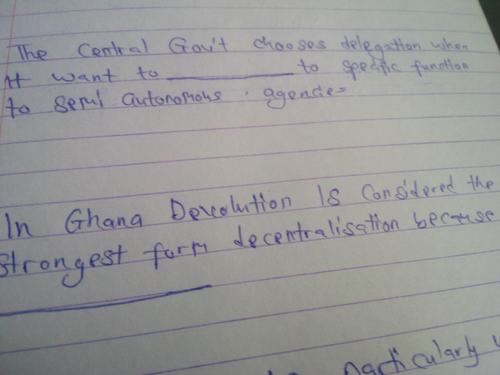 The Central Gov't chooses delegation when
it want to __________ to specific function
to semi autonomous . agencies
In Ghana Devolution Is Considered the
strongest form decentralisation because
__________
particularly